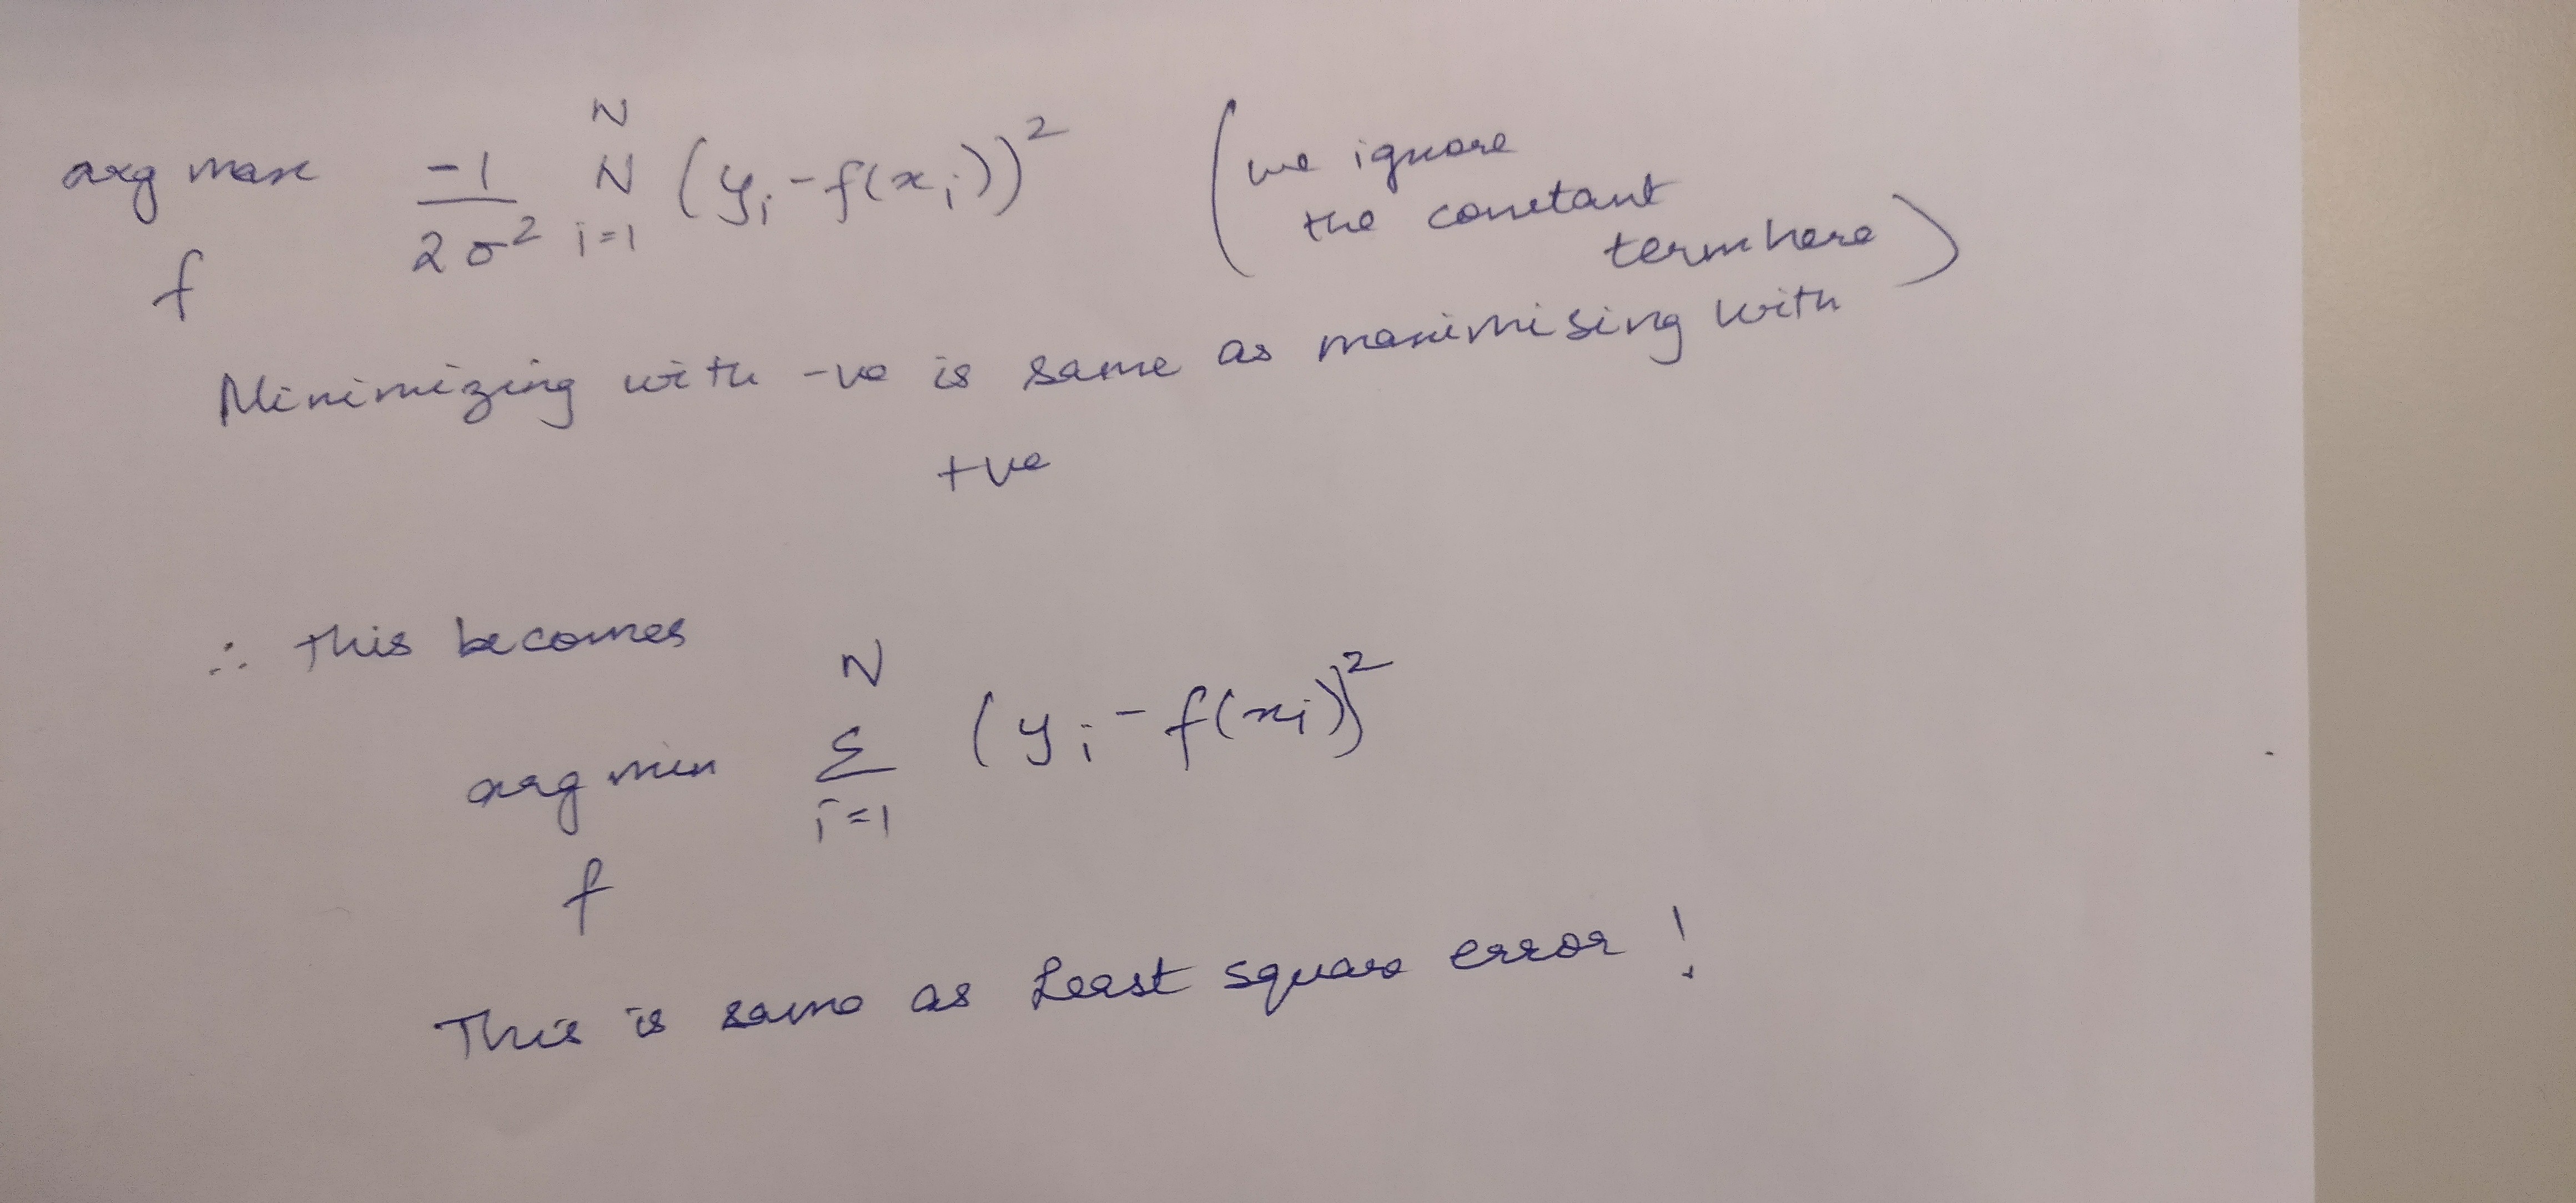 arg max -1/2σ² N N i=1 (yᵢ - f(xᵢ))² (we ignore
f the constant
term here)
Minimizing with -ve is same as maximising with
+ve
∴ This becomes
arg min N Σ i=1 (yᵢ - f(xᵢ))²
f
This is same as Least square error !